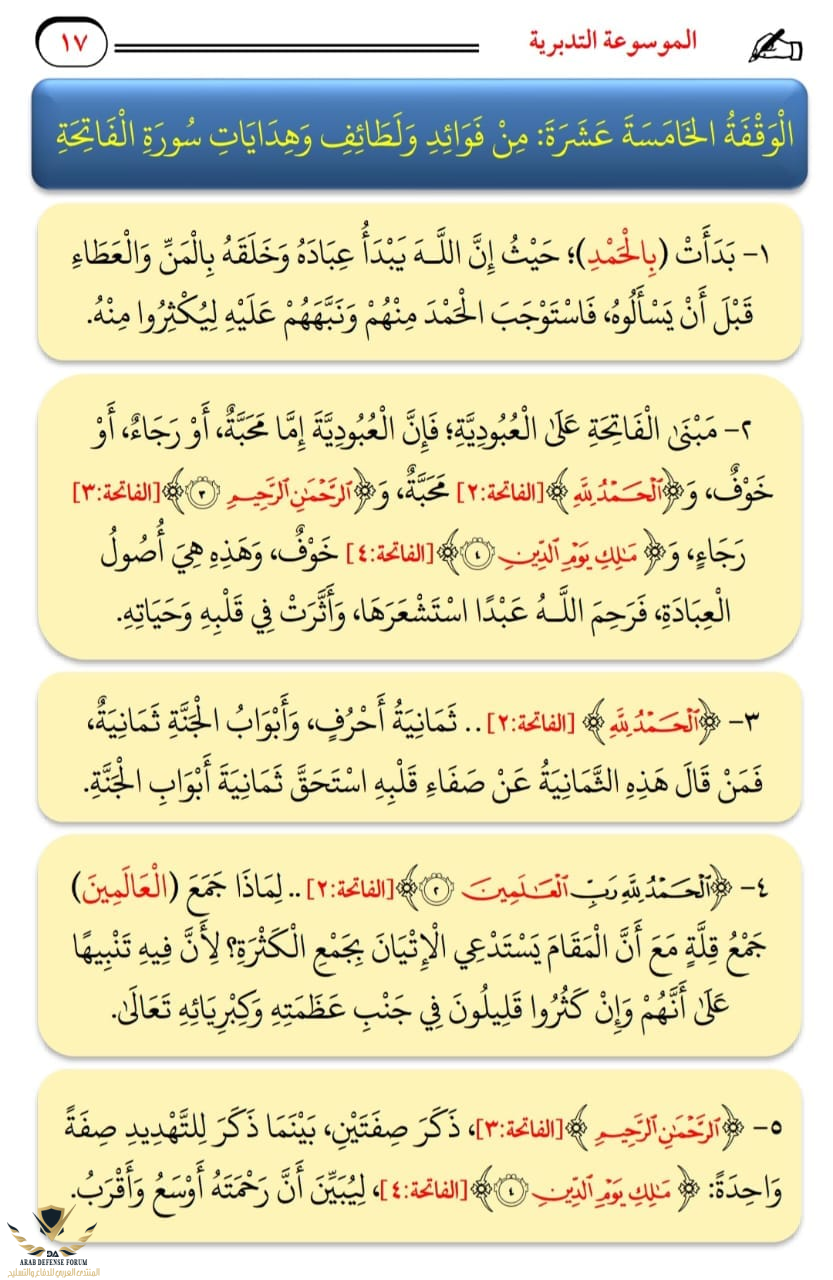 الموسوعة التدبرية
١٧
الْوَقْفَةُ الْخَامِسَةَ عَشَرَةَ: مِنْ فَوَائِدِ وَلَطَائِفِ وَهِدَايَاتِ سُورَةِ الْفَاتِحَةِ
١- بَدَأَتْ (بِالْحَمْدِ)؛ حَيْثُ إِنَّ اللَّهَ يَبْدَأُ عِبَادَهُ وَخَلَقَهُ بِالْمَنِّ وَالْعَطَاءِ
قَبْلَ أَنْ يَسْأَلُوهُ، فَاسْتَوْجَبَ الْحَمْدَ مِنْهُمْ وَنَبَّهَهُمْ عَلَيْهِ لِيُكْثِرُوا مِنْهُ.
٢- مَبْنَى الْفَاتِحَةِ عَلَى الْعُبُودِيَّةِ؛ فَإِنَّ الْعُبُودِيَّةَ إِمَّا مَحَبَّةٌ، أَوْ رَجَاءٌ، أَوْ
خَوْفٌ، وَ﴿ٱلۡحَمۡدُ لِلَّهِ﴾ [الفاتحة:٢] مَحَبَّةٌ، وَ﴿ٱلرَّحۡمَٰنِ ٱلرَّحِيمِ ٣﴾ [الفاتحة:٣]
رَجَاءٍ، وَ﴿مَٰلِكِ يَوۡمِ ٱلدِّينِ ٤﴾ [الفاتحة:٤] خَوْفٌ، وَهَذِهِ هِيَ أُصُولُ
الْعِبَادَةِ، فَرَحِمَ اللَّهُ عَبْدًا اسْتَشْعَرَهَا، وَأَثَّرَتْ فِي قَلْبِهِ وَحَيَاتِهِ.
٣- ﴿ٱلۡحَمۡدُ لِلَّهِ﴾ [الفاتحة:٢] .. ثَمَانِيَةُ أَحْرُفٍ، وَأَبْوَابُ الْجَنَّةِ ثَمَانِيَةٌ،
فَمَنْ قَالَ هَذِهِ الثَّمَانِيَةُ عَنْ صَفَاءِ قَلْبِهِ اسْتَحَقَّ ثَمَانِيَةَ أَبْوَابِ الْجَنَّةِ.
٤- ﴿ٱلۡحَمۡدُ لِلَّهِ رَبِّ ٱلۡعَٰلَمِينَ ٢﴾ [الفاتحة:٢] .. لِمَاذَا جَمَعَ (الْعَالَمِينَ)
جَمْعُ قِلَّةٍ مَعَ أَنَّ الْمَقَامَ يَسْتَدْعِي الْإِتْيَانَ بِجَمْعِ الْكَثْرَةِ؟ لِأَنَّ فِيهِ تَنْبِيهًا
عَلَى أَنَّهُمْ وَإِنْ كَثُرُوا قَلِيلُونَ فِي جَنْبِ عَظَمَتِهِ وَكِبْرِيَائِهِ تَعَالَى.
٥- ﴿ٱلرَّحۡمَٰنِ ٱلرَّحِيمِ﴾ [الفاتحة:٣]، ذَكَرَ صِفَتَيْنِ، بَيْنَمَا ذَكَرَ لِلتَّهْدِيدِ صِفَةً
وَاحِدَةً: ﴿مَٰلِكِ يَوۡمِ ٱلدِّينِ ٤﴾ [الفاتحة:٤]، لِيُبَيِّنَ أَنَّ رَحْمَتَهُ أَوْسَعُ وَأَقْرَبُ.
DA
ARAB DEFENSE FORUM
المنتدى العربي للدفاع والتسليح